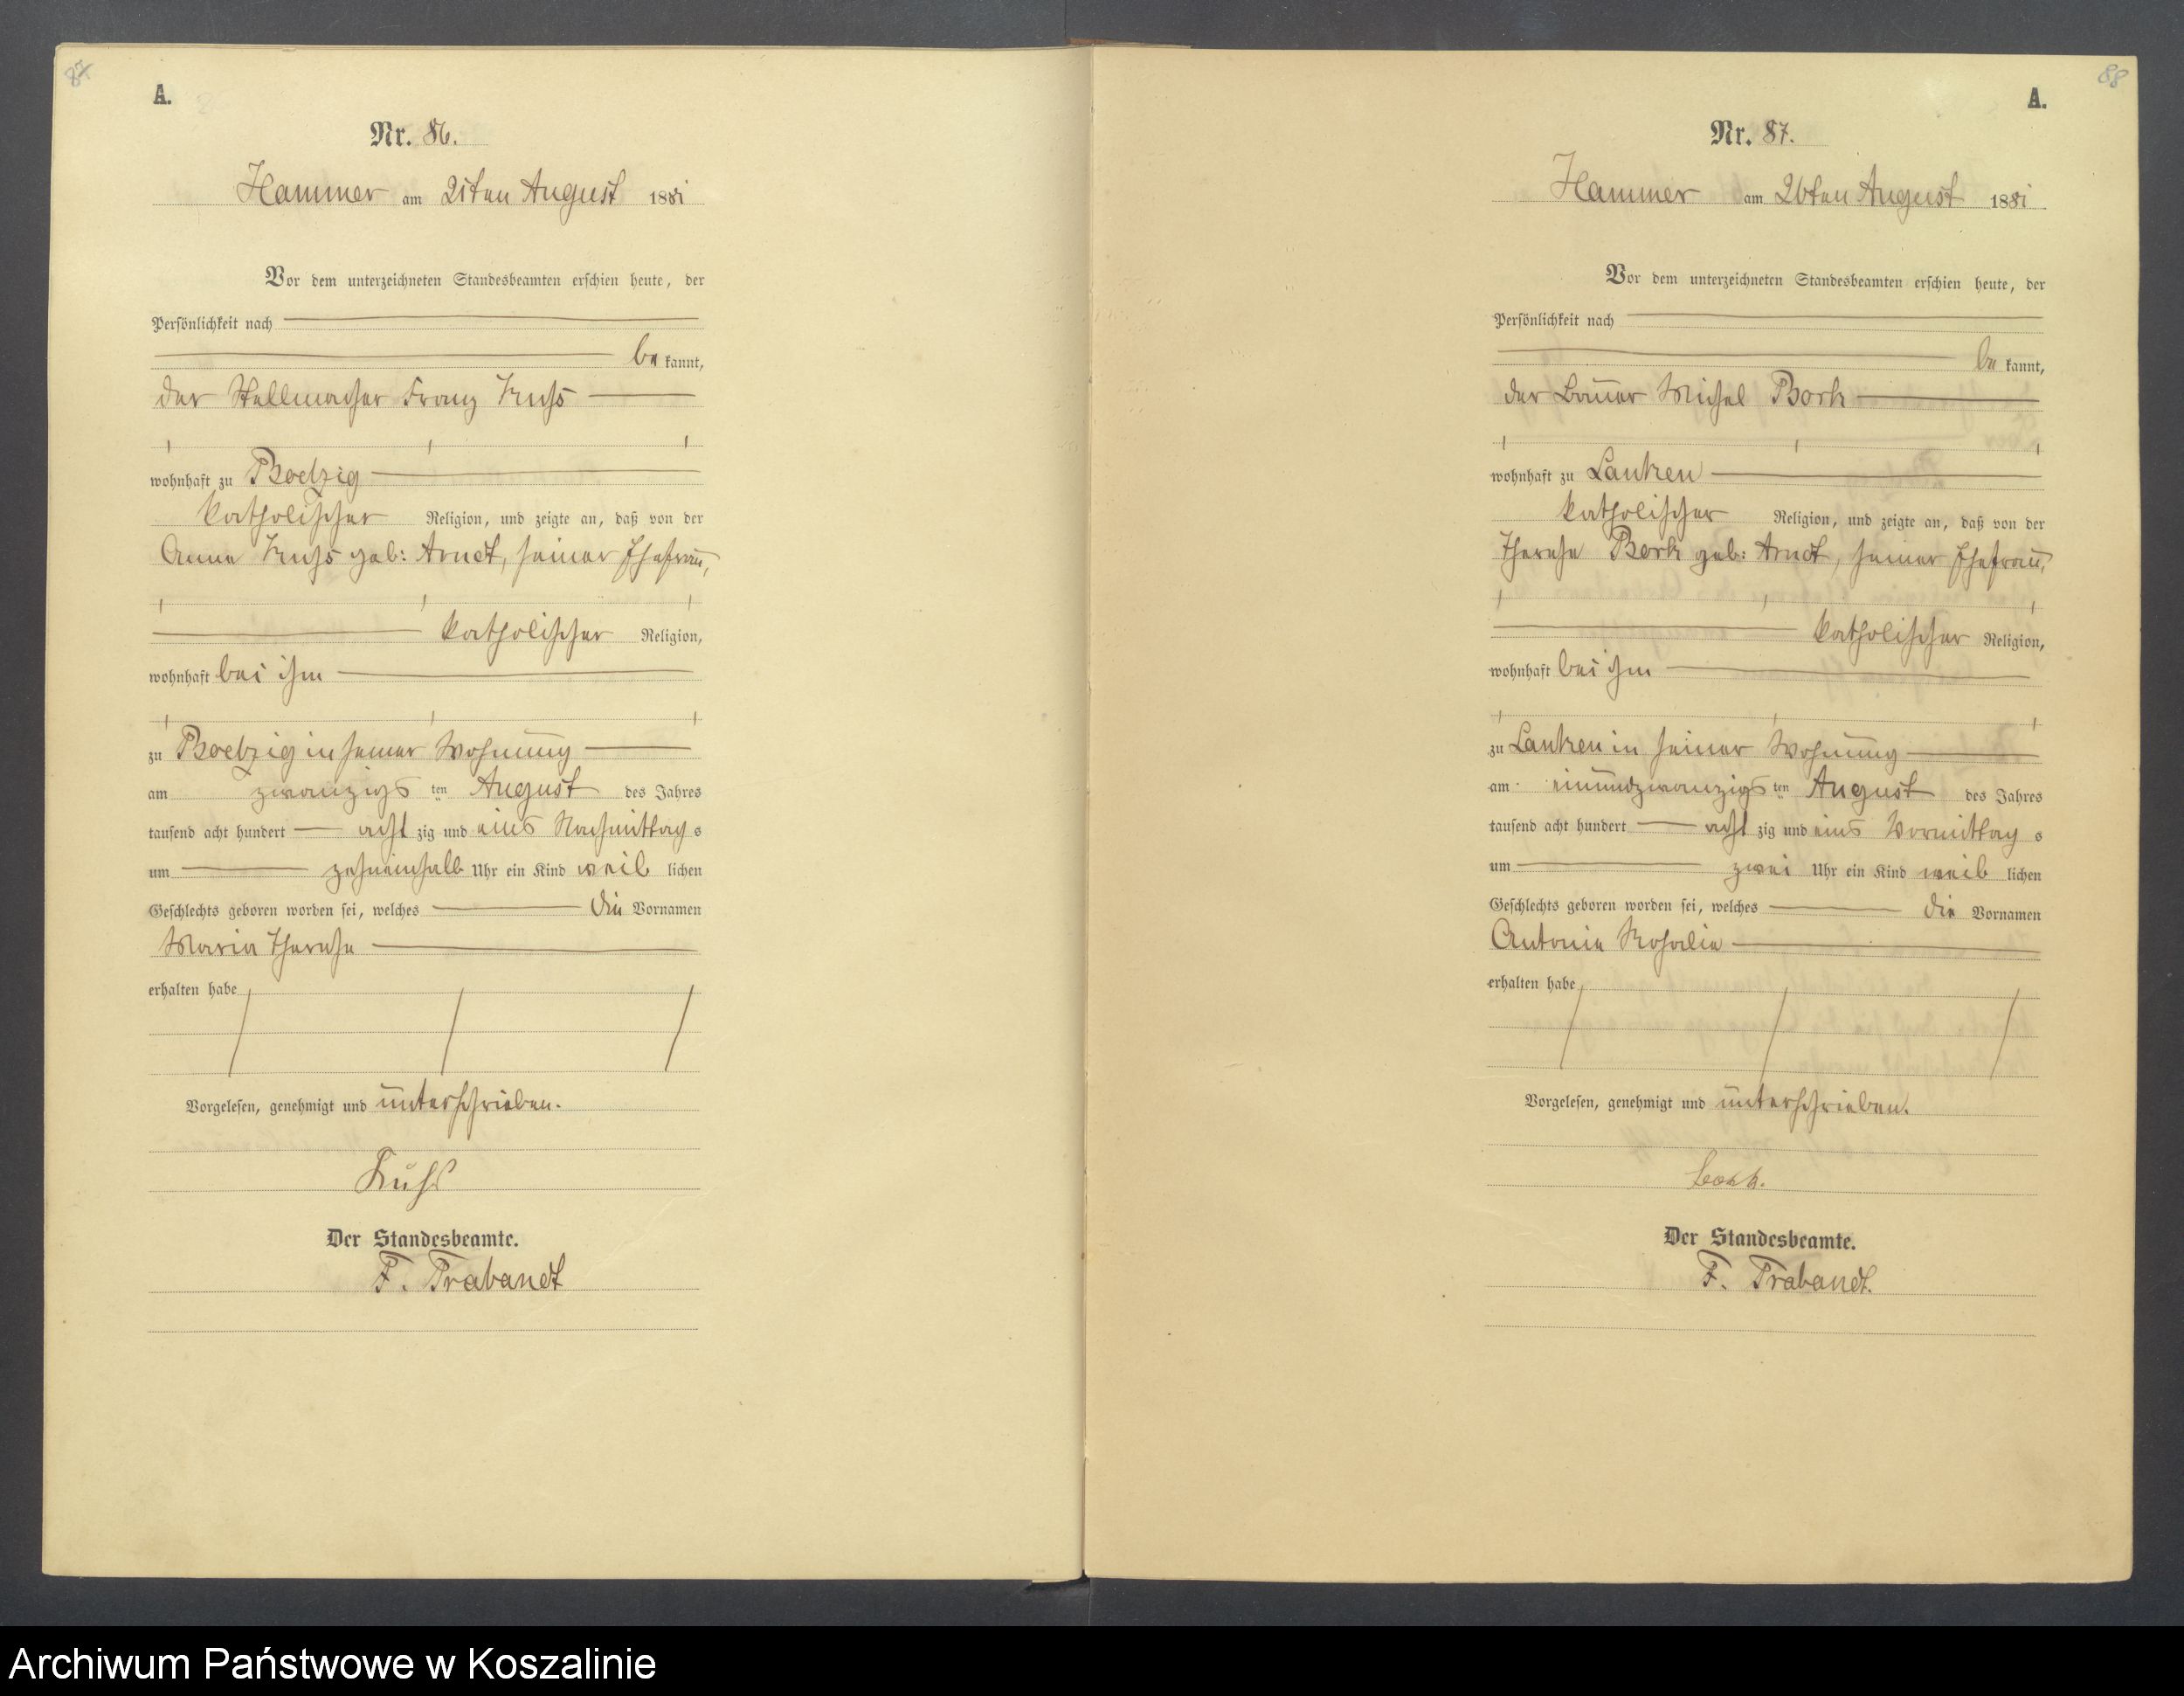 87
A.
Nr. 86.
Hammer am 21ten August 1881
Vor dem unterzeichneten Standesbeamten erschien heute, der
Persönlichkeit nach
be kannt,
der Stellmacher Franz Kuhs
wohnhaft zu Boetzig
katholischer Religion, und zeigte an, daß von der
Anna Kuhs geb: Arndt, seiner Ehefrau,
katholischer Religion,
wohnhaft bei ihm
zu Boetzig in seiner Wohnung
am zwanzigs ten August des Jahres
tausend acht hundert acht zig und eins Nachmittag s
um zehneinhalb Uhr ein Kind weib lichen
Geschlechts geboren worden sei, welches die Vornamen
Maria Therese
erhalten habe
Vorgelesen, genehmigt und unterschrieben.
Kuhs
Der Standesbeamte.
F. Trabandt
88
A.
Nr. 87.
Hammer am 26ten August 1881
Vor dem unterzeichneten Standesbeamten erschien heute, der
Persönlichkeit nach
be kannt,
der Bauer Michel Bork
wohnhaft zu Lanken
katholischer Religion, und zeigte an, daß von der
Therese Bork geb: Arndt, seiner Ehefrau,
katholischer Religion,
wohnhaft bei ihm
zu Lanken in seiner Wohnung
am einundzwanzigs ten August des Jahres
tausend acht hundert acht zig und eins Vormittag s
um zwei Uhr ein Kind weib lichen
Geschlechts geboren worden sei, welches die Vornamen
Antonie Rosalie
erhalten habe
Vorgelesen, genehmigt und unterschrieben.
Bork.
Der Standesbeamte.
F. Trabandt.
Archiwum Państwowe w Koszalinie